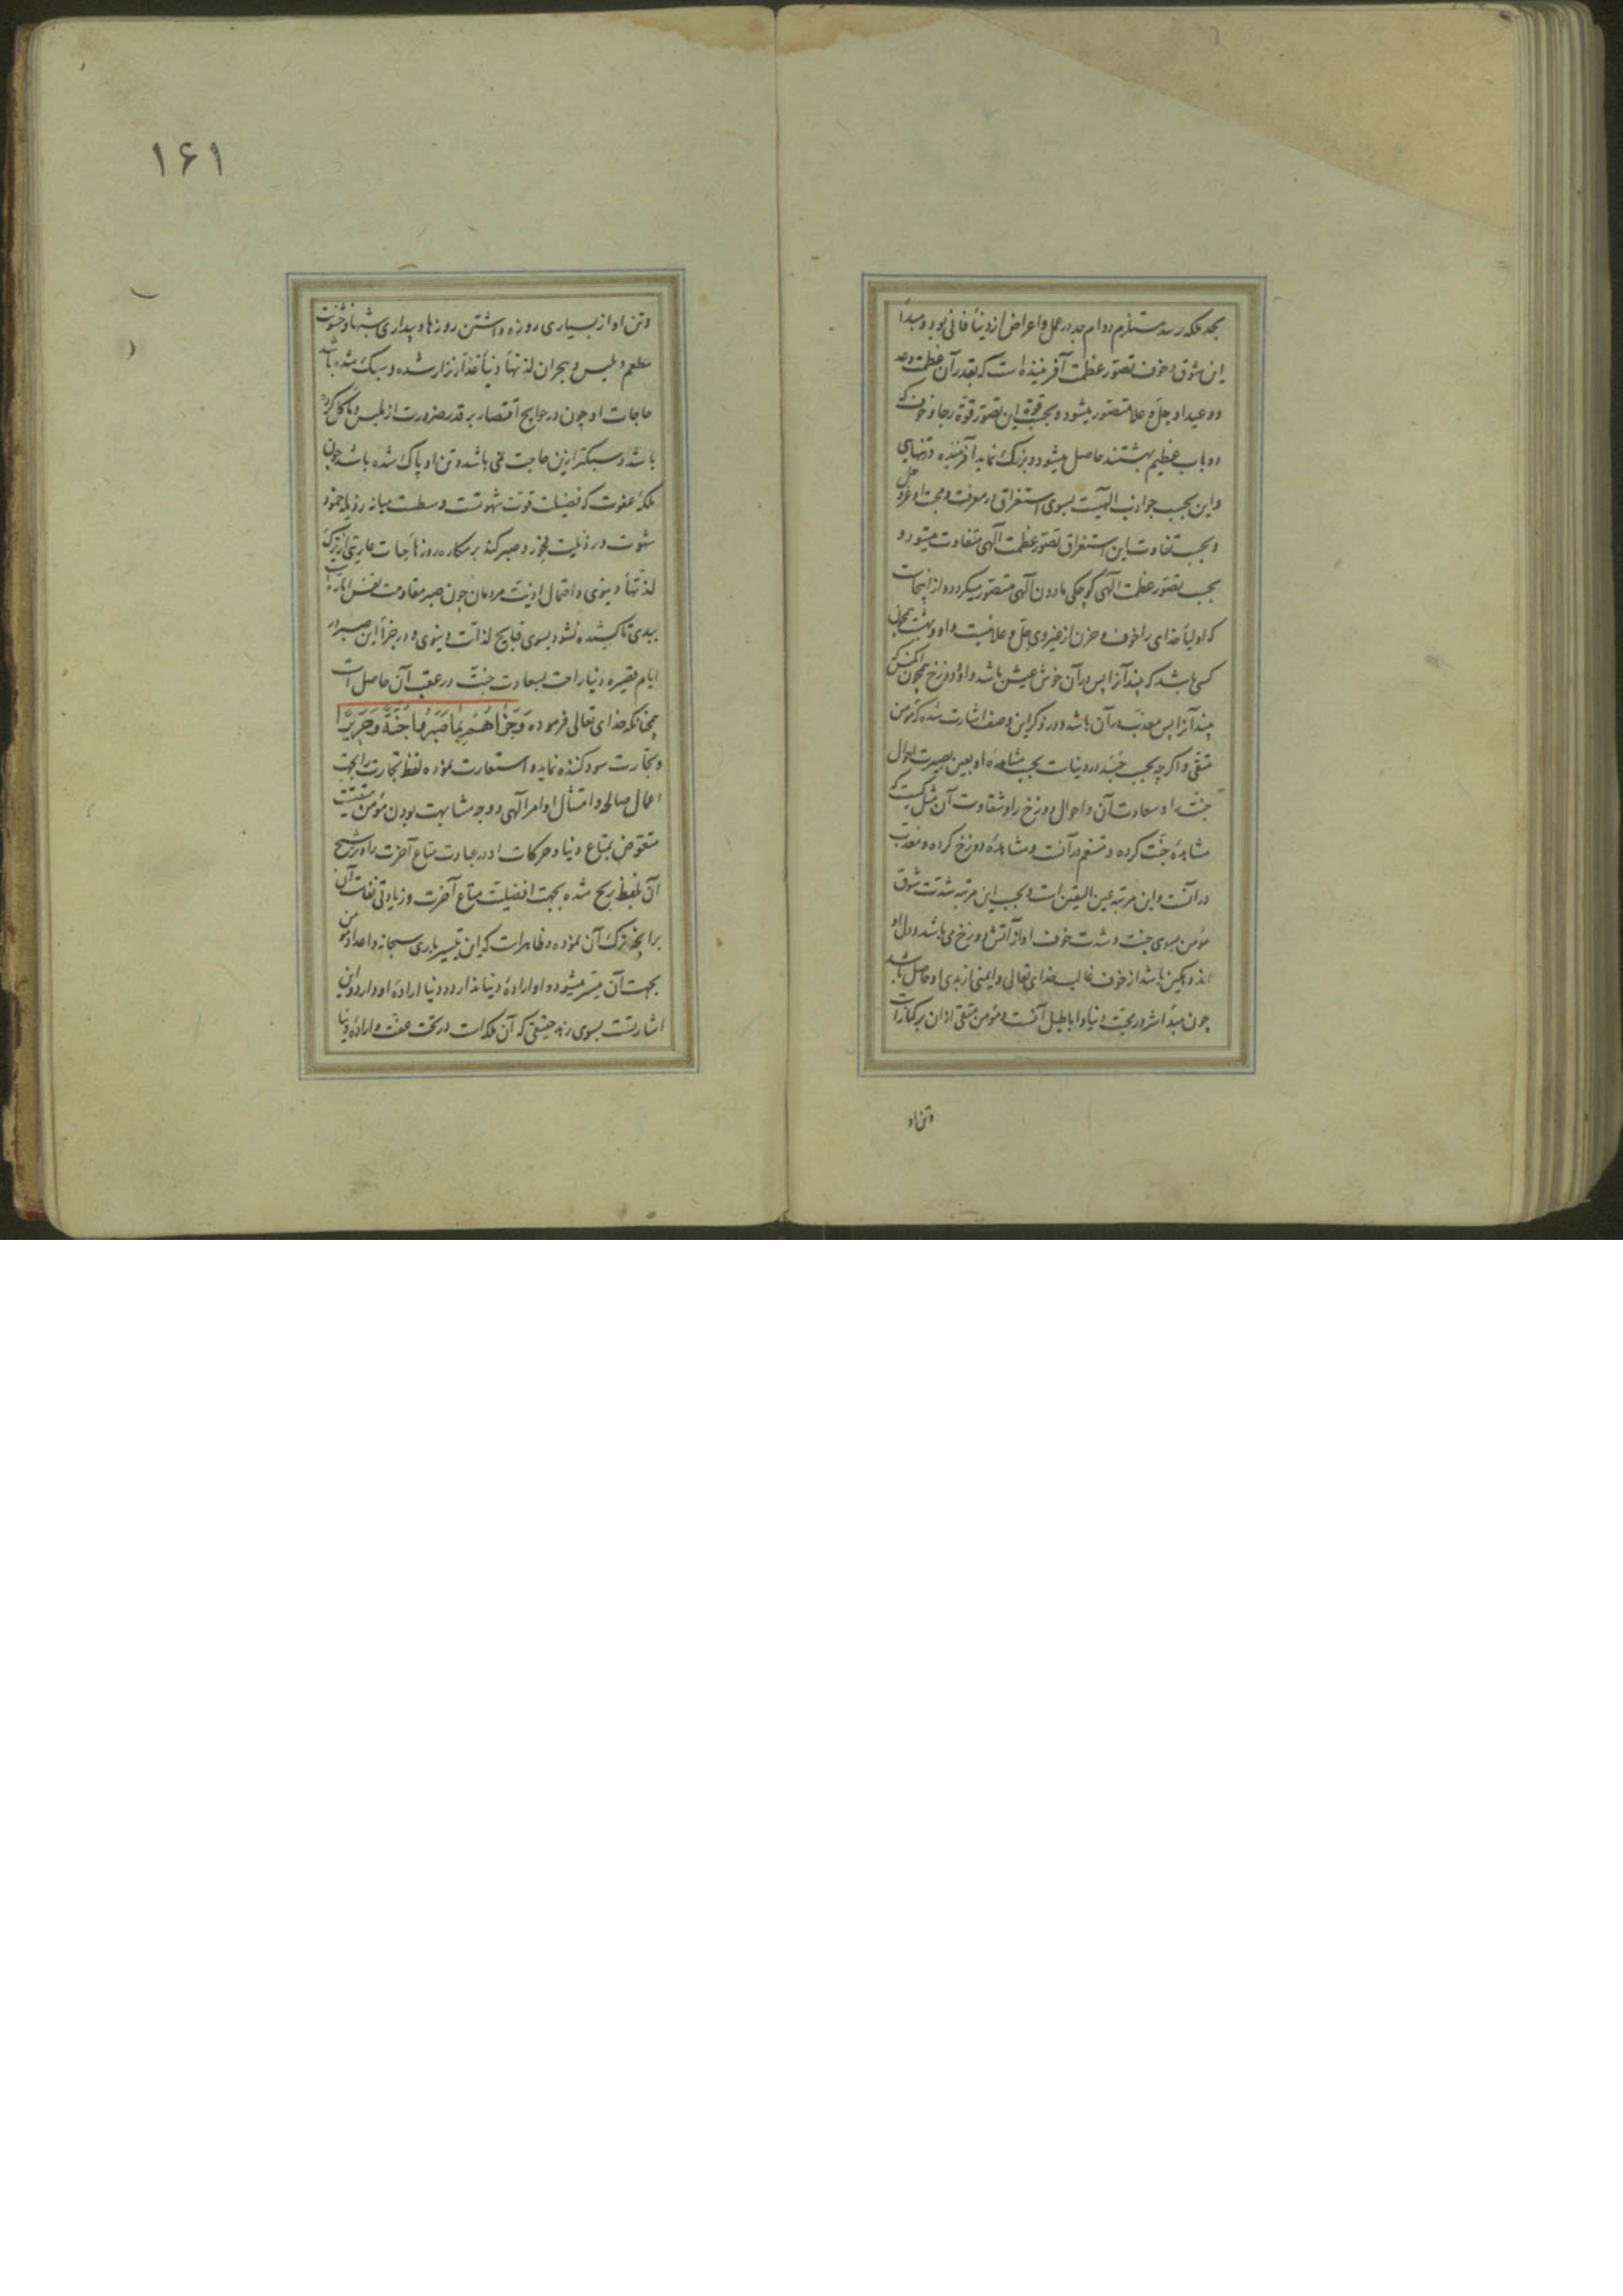 بحد ملکه رسد مستلزم دوام جد در عمل و اعراض از دنیاء فانی بود و مبداء
این شوق و خوف تصور عظمت آفریننده است که بقدر آن عظمت وعد
و وعید او جل و علا متصور میشود و بحسب قوة این تصور قوة رجا و خوف که
دو باب عظیم بهشتند حاصل میشود و بزرک نماید آفریننده در تنهای
و این بحسب جواذب الهیت بسوی استغراق در معرفت و محبت او عز و جل
و بحسب تفاوت این استغراق تصور عظمت الهی متفاوت میشود و
بحسب تصور عظمت الهی کوچکی مادون الهی متصور میکردد و از اینجاست
که اولیاء خدای را خوف و حزن از غیر وی جل و علا نیست و او و بهشت همچون
کسی باشد که بیند آنرا پس در آن خوش عیش باشد و او و دوزخ همچون انکس که
بیند آنرا پس معذب در آن باشد و در ذکر این وصف اشارت شده که مومن
متقی و اکرچه بحسب جسد در دنیاست بحسب مشاهده او بعین بصیرت احوال
جنت را و سعادت آن و احوال دوزخ را و شقاوت آن مثل کسیست که
مشاهدهٔ جنت کرده و متنعم در آنست و مشاهدهٔ دوزخ کرده و معذب
در آنست و این مرتبه عین الیقین است و بحسب این مرتبه شدت شوق
مومن بسوی جنت و شدت خوف او از آتش دوزخ می باشد و دل او
اندوهکین باشد از خوف غالب خدای تعالی و ایمنی از بدی او حاصل باشد
چون مبداء شرور محبت دنیا و اباطیل آنست و مومن متقی از آن برکنار است
و تن او
۱۶۱
و تن او از بسیاری روزه داشتن روزها و بیداری شبها و خشونت
مطعم و ملبس و هجران لذتهاء دنیاء غدار نزار شده و سبک شده باشد
حاجات او چون در حوایج اقتصار بر قدر ضرورت از ملبس و ماکل کرده
باشد و سبکتر ازین حاجت نمی باشد و تن او پاک شده باشد چون
ملکهٔ عفوت که فضیلت قوت شهوتست و سطست میانه رذیله خمود
شهوت و رذیلت فجور و صبر کند بر مکاره روزهاء حیات عاریتی از ترک
لذتهاء دنیوی و احتمال اذیت مردمان چون صبر مقاومت نفس اماره است
ببدی تا کشیده نشود بسوی قبایح لذات دنیوی و در جزاء این صبر در
ایام قصیره دنیا راحت بسعادت جنت در عقب آن حاصل است
همچنانکه خدای تعالی فرموده وَجَزاهُمْ بِمَا صَبَرُوا جَنَّةً وَحَرِیرًا
و تجارت سود کننده نماید و استعارت نموده لفظ تجارت را بجهت
اعمال صالحه و امتثال اوامر الهی و وجه مشابهت بودن مؤمن متقیست
متعوض بمتاع دنیا و حرکات او در عبادت متاع آخرت را و ترشیح
آن بلفظ ربح شده بجهت افضلیت متاع آخرت و زیادتی نفاست آن
بر آنچه ترک آن نموده و ظاهر است که این تیسیر باری سبحانه و اعداد مومن
بجهت آن میسر میشود و او ارادهٔ دنیا ندارد و دنیا ارادهٔ او دارد و این
اشارتست بسوی زهد حقیقی که آن ملکه است در تحت عفت و ارادهٔ دنیا